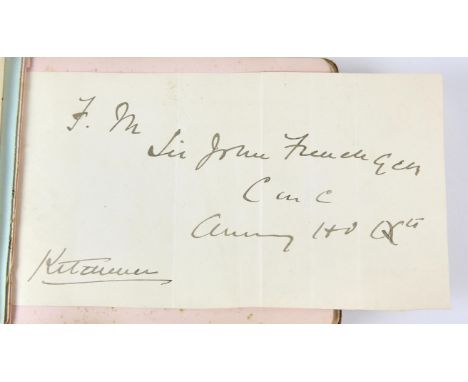 F. M
Sir John French GCB
C in C
Army Hd Qrts
Kitchener